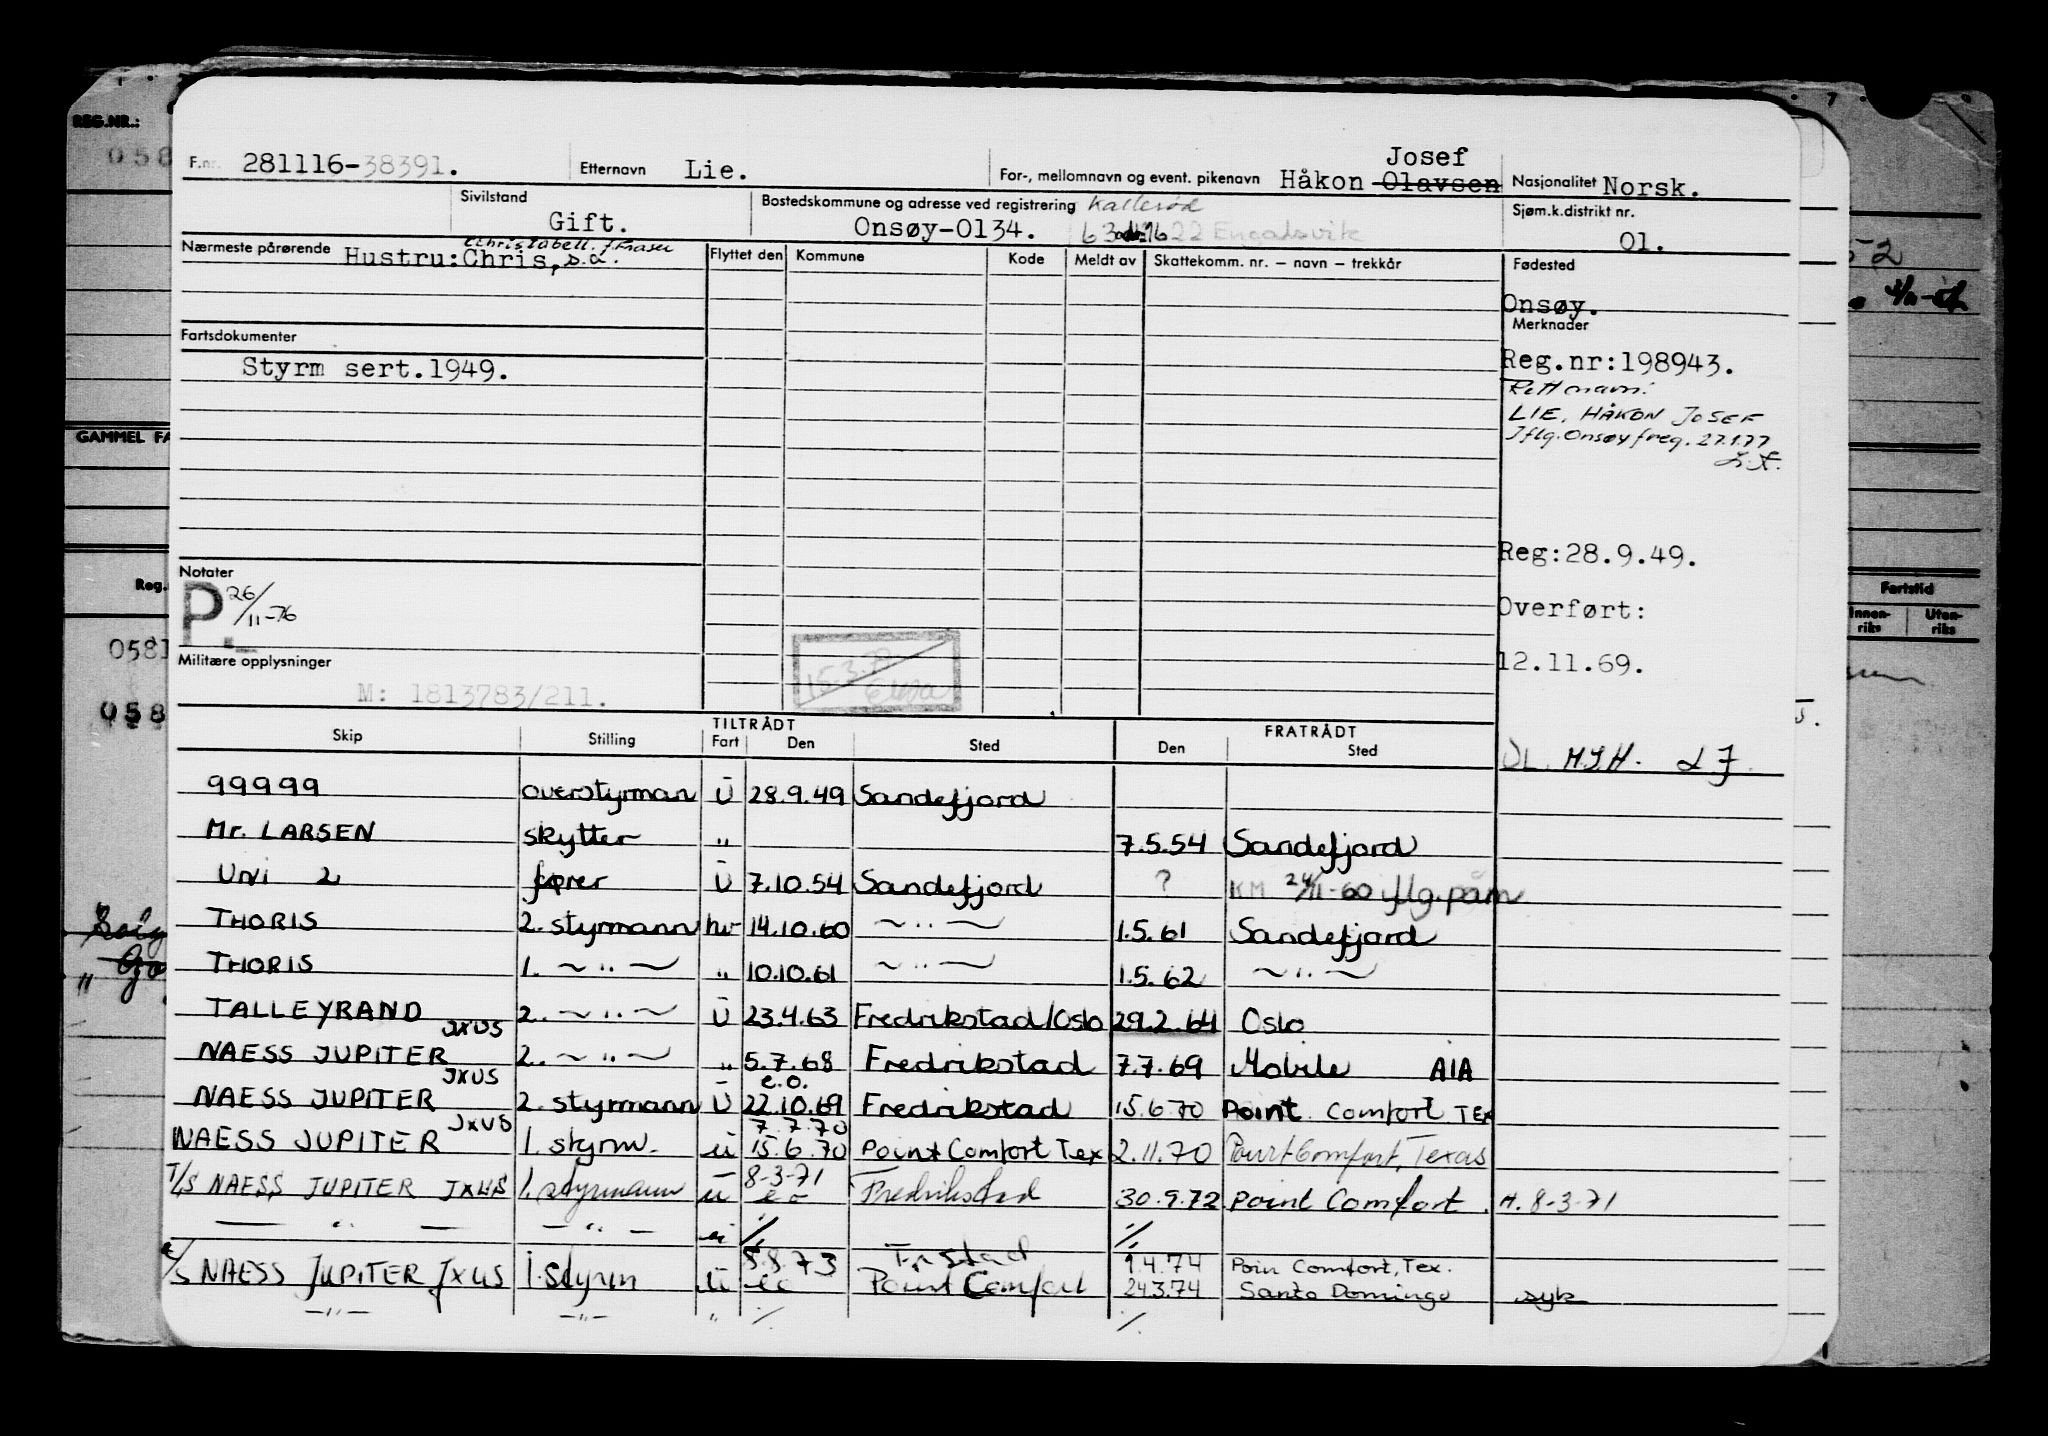 REG.NR.:
058
F.nr. 281116-38391. Etternavn Lie. For-, mellomnavn og event. pikenavn Håkon Josef Olavsen Nasjonalitet Norsk.
Sivilstand Gift. Bostedskommune og adresse ved registrering Onsøy-0134. Kallerød 1622 Engalsvik Sjøm.k.distrikt nr. 01.
Nærmeste pårørende Hustru: Chris, s.a. Christabell. f. Fraser
Flyttet den Kommune Kode Meldt av Skattekomm. nr. – navn – trekkår
Fødested
Onsøy.
Merknader
Fartsdokumenter
Styrm sert.1949.
Reg.nr:198943.
Rett navn:
LIE, HÅKON JOSEF
Iflg. Onsøy freg. 27.1.77
GAMMEL FA
Reg:28.9.49.
Notater
P. 26/11-76
Overført:
12.11.69.
Militære opplysninger
M: 1813783/211.
15.3.77
Reg.
0581
058
Fartstid
Innen-riks Uten-riks
TILTRÅDT FRATRÅDT
Skip Stilling Fart Den Sted Den Sted
99999 overstyrman Ū 28.9.49 Sandefjord
Mr. LARSEN skytter " 7.5.54 Sandefjord
Uni 2 fører Ū 7.10.54 Sandefjord ? KM 24/11-60 iflg. påm
THORIS 2. styrmann hv 14.10.60 ~ " ~ 1.5.61 Sandefjord
THORIS 1. ~ " ~ " 10.10.61 ~ " ~ 1.5.62 ~ " ~
TALLEYRAND 2. ~ " ~ Ū 23.4.63 Fredrikstad/Oslo 29.2.64 Oslo
NAESS JUPITER JXUS 2. ~ " ~ " 5.7.68 Fredrikstad 7.7.69 Mobile AlA
NAESS JUPITER JXUS 2. styrmann Ū e.o. 22.10.69 Fredrikstad 15.6.70 Point Comfort TEX
NAESS JUPITER JXUS 1. styrm. ū 7.7.70 15.6.70 Point Comfort Tex 2.11.70 Point Comfort, Texas
T/S NAESS JUPITER JXUS 1. styrmann ū 8-3-71 eo Fredrikstad 30.9.72 Point Comfort. A. 8-3-71
— " — — " — ū % %
NAESS JUPITER JXUS 1. styrm ū 5.8.73 eo Fr.stad Point Comfort 9.4.74 Poin Comfort, Tex.
24.3.74 Santo Domingo syk
— " — — " — " % %